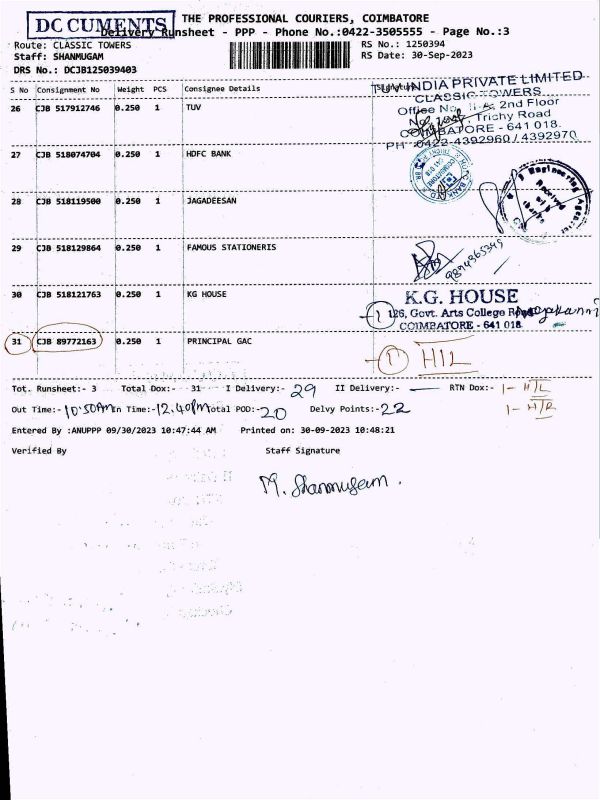 DOCUMENTS
THE PROFESSIONAL COURIERS, COIMBATORE
Delivery Runsheet - PPP - Phone No.:0422-3505555 - Page No.:3
Route: CLASSIC TOWERS
RS No.: 1250394
Staff: SHANMUGAM
RS Date: 30-Sep-2023
DRS No.: DCJB125039403
S No Consignment No Weight PCS Consignee Details Signature
26 CJB 517912746 0.250 1 TUV
INDIA PRIVATE LIMITED
CLASSIC TOWERS
Office No. 2nd Floor
Trichy Road
COIMBATORE - 641 018.
PH 0422-4392960 / 4392970
27 CJB 518074704 0.250 1 HDFC BANK
28 CJB 518119500 0.250 1 JAGADEESAN
Engineering
Received
with
thanks
29 CJB 518129864 0.250 1 FAMOUS STATIONERIS
9894865345
30 CJB 518121763 0.250 1 KG HOUSE
K.G. HOUSE
1
126, Govt. Arts College Road
COIMBATORE - 641 018.
31 CJB 89772163 0.250 1 PRINCIPAL GAC
1 H/L
Tot. Runsheet:- 3 Total Dox:- 31 I Delivery:- 29 II Delivery:- RTN Dox:- 1- H/L
Out Time:- 10:50Am In Time:- 12.40PM Total POD:- 20 Delvy Points:- 22
Entered By :ANUPPP 09/30/2023 10:47:44 AM Printed on: 30-09-2023 10:48:21
Verified By Staff Signature
M. Shanmugam.